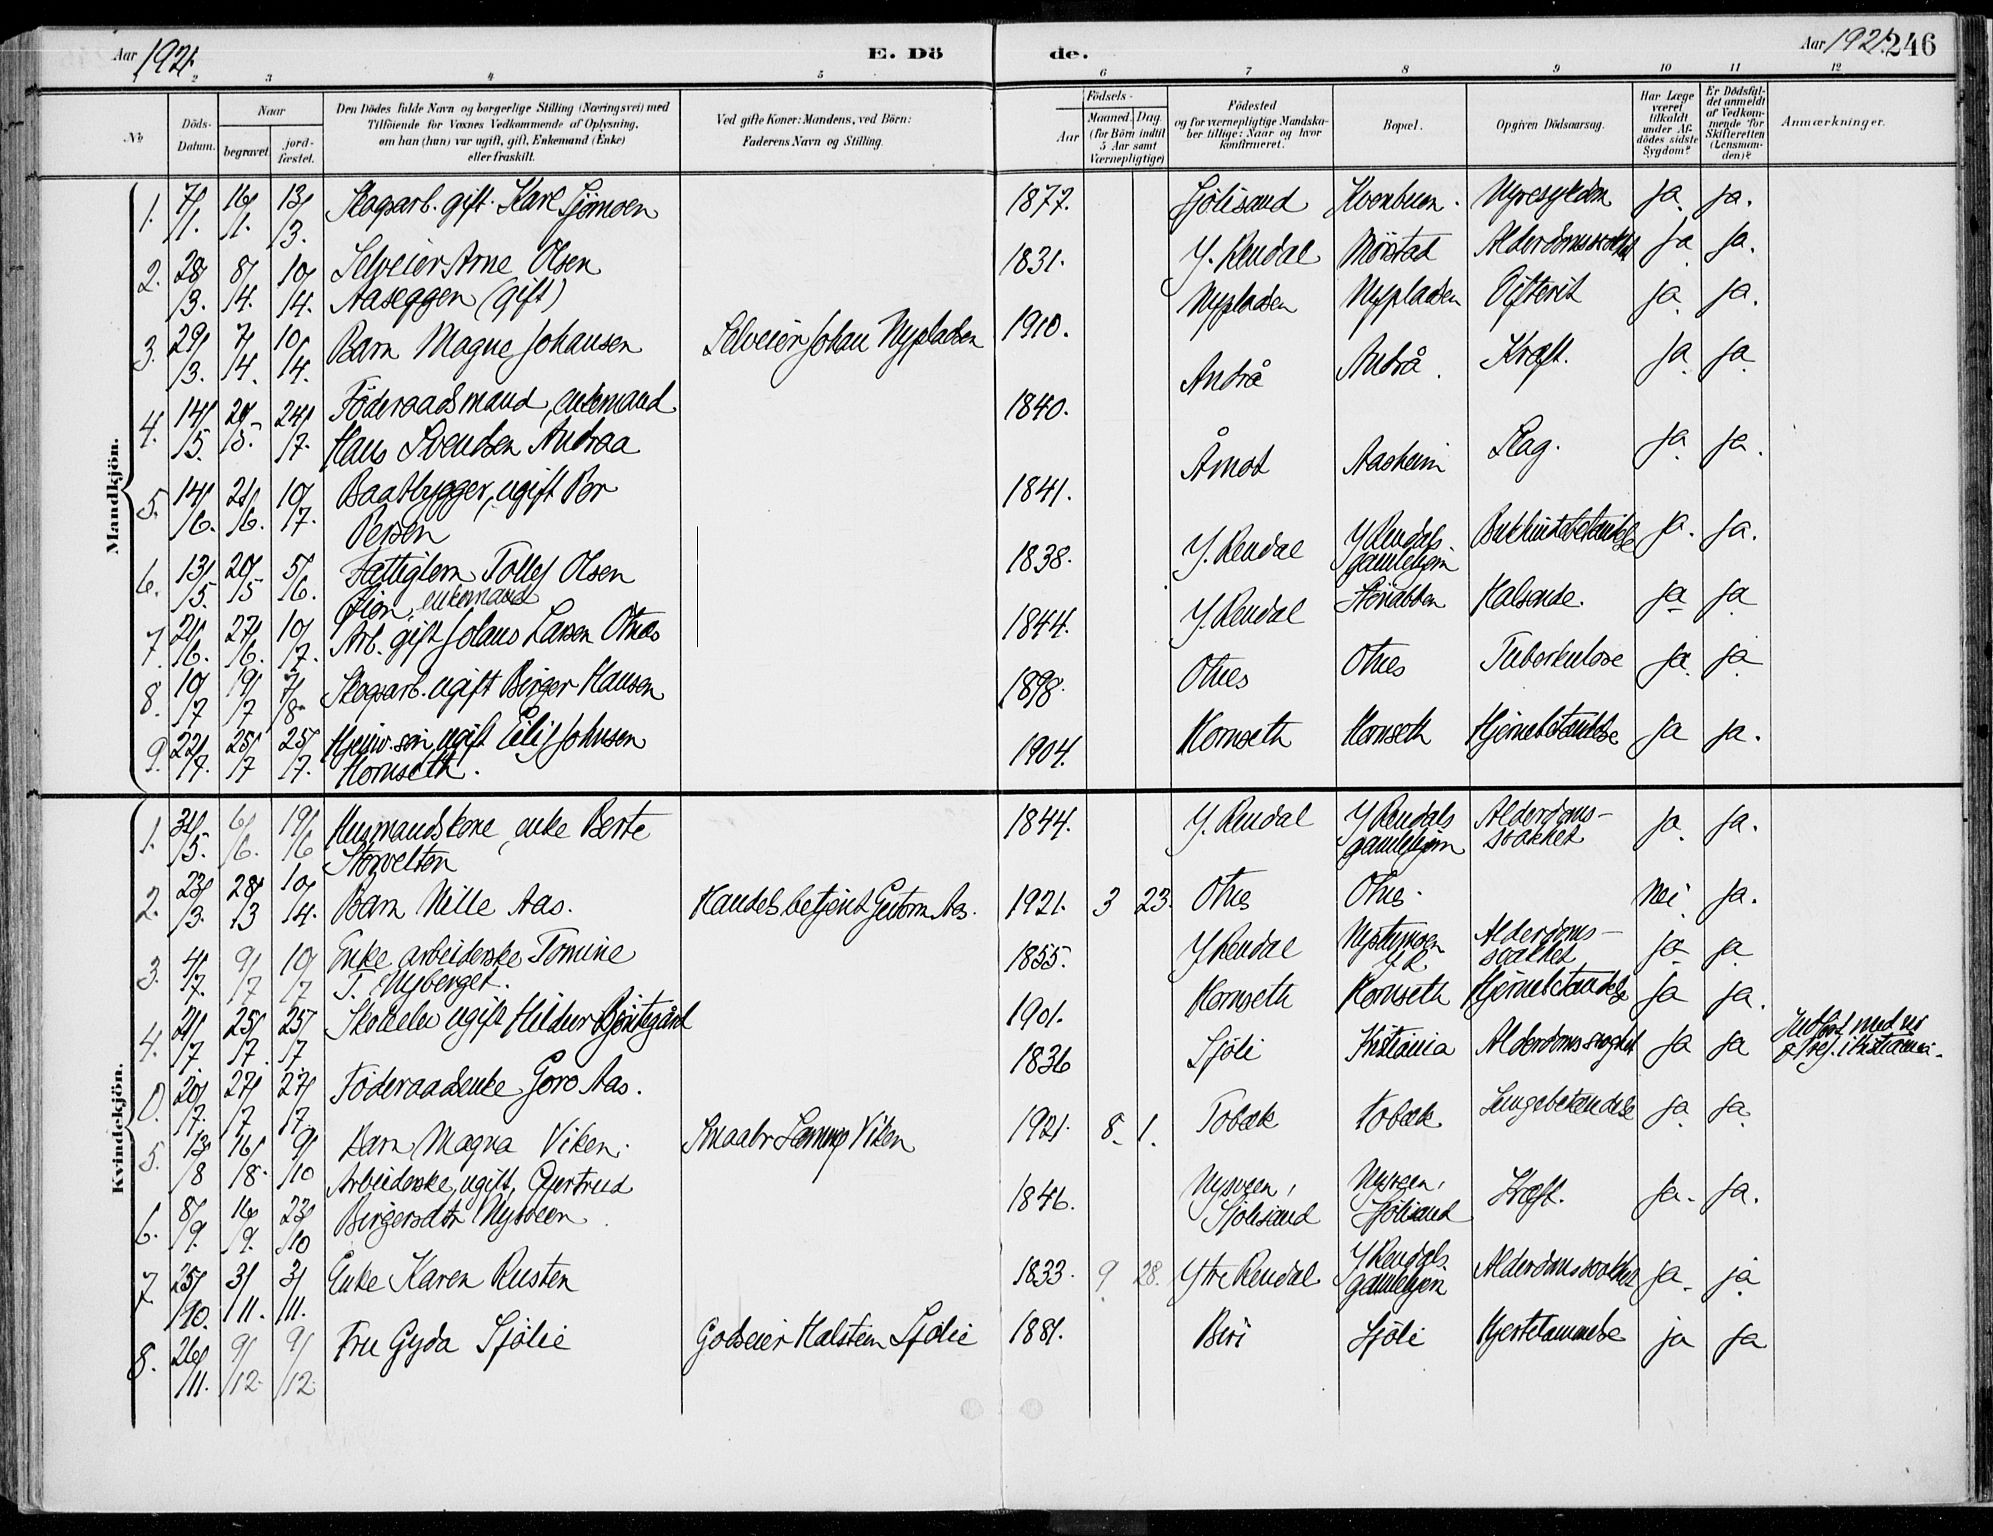 Aar 1921. E. Dö de. Aar 1921. 246
2 3 4 5 6 7 8 9 10 11 12
No
Döds-Datum.
Naar
begravet.
jord-fæstet.
Den Dödes fulde Navn og borgerlige Stilling (Næringsvei) med
Tilföiende for Voxnes Vedkommende af Oplysning,
om han (hun) var ugift, gift, Enkemand (Enke)
eller fraskilt.
Ved gifte Koner: Mandens, ved Börn:
Faderens Navn og Stilling.
Födsels-
Aar
Maaned. Dag
(for Börn indtil
5 Aar samt
Værnepligtige)
Födested
og for værnepligtige Mandska-
ber tillige: Naar og hvor
konfirmeret.
Bopæl.
Opgiven Dödsaarsag.
Har Læge
været
tilkaldt
under Af-
dödes sidste
Sygdom?
Er Dödsfal-
det anmeldt
af Vedkom-
mende for
Skifteretten
(Lensman-
den)?
Anmærkninger.
Mandkjön.
1. 7/1. 16/1. 13/3. Skogsarb. gift. Karl Sjömoen 1877. Sjölisand Kvenbuen. Nyresykdom ja. ja.
2. 28/3. 8/4. 10/4. Selveier Arne Olsen
Aaseggen (gift) 1831. Y. Rendal Mörstad Alderdomssvakhet ja. ja.
3. 29/3. 7/4. 10/4. Barn Magne Johansen Selveier Johan Nypladsen 1910. Nypladsen Nypladsen ja. ja.
4. 14/5. 20/5. 24/7. Föderaadsmand, enkemand
Hans Svendsen Andraa 1840. Andrå Andrå. Kræft. ja. ja.
5. 14/6. 21/6. 10/7. Baatbygger, ugift Per
Persen 1841. Åmot Aasheim Slag. ja. ja.
6. 13/5. 20/5 5/6. Fattiglem Tollef Olsen
enkemand 1838. Y. Rendal Y Rendals
gamlehjem ja. ja.
7. 21/6. 27/6. 10/7. Arb. gift Johans Larsen Otnes 1844. Y. Rendal ja ja
8. 10/7 19/7 7/8 Skogsarb. ugift Birger Hansen 1898. Otnes Otnes Tuberkulose ja ja
9. 22/7. 25/7 25/7. ugift Eilif Johnsen
Hornseth. 1904. Hornseth Hornseth Hjernebetændelse ja ja.
Kvindekjön.
1. 31/5. 6/6. 19/6 Husmandskone, enke Berte
Storvelten 1844. Y. Rendal Y Rendals
gamlehjem Alderdoms-
svakhet ja. ja.
2. 23/3. 28/3 10/4. Barn Nille Aas. Handelsbetjent Gutorm Aas. 1921. 3 23. Otnes Otnes. Nei. ja.
3. 4/7. 9/7 10/7 Enke arbeiderske Tomine
T. Nyberget. 1855. Y Rendal Alderdoms-
svakhet ja. ja
4. 21/7 25/7. 25/7. ugift Hildur 1901. Hornseth Hornseth Hjernebetændelse ja ja.
0. 20/7. 27/7 27/7. Föderaadsenke Goro Aas. 1836 Sjöli Kristiania Alderdomssvaghet ja ja
i Kristiania.
5. 13/8 16/8. 9/10 Barn Magna Viken. Viken 1921. 8. 1. Tobæk Tobæk Lungebetændelse ja. ja.
6. 8/9. 16/9. 23/10 Arbeiderske, ugift, Gjertrud
Birgersdtr Nysveen 1846. Nysveen,
Sjölisand Nysveen,
Sjölisand Kræft. ja. ja.
7 25/10. 3/11. 3/11. Enke Karen Rusten 1833. 9 28. Ytre Rendal Y Rendals
gamlehjem Alderdomssvakhet ja. ja
8. 26/11. 9/12. 9/12. Fru Gyda Sjölie Godseier Halsten Sjölie 1881. Biri Sjöli Hjertelammelse ja ja